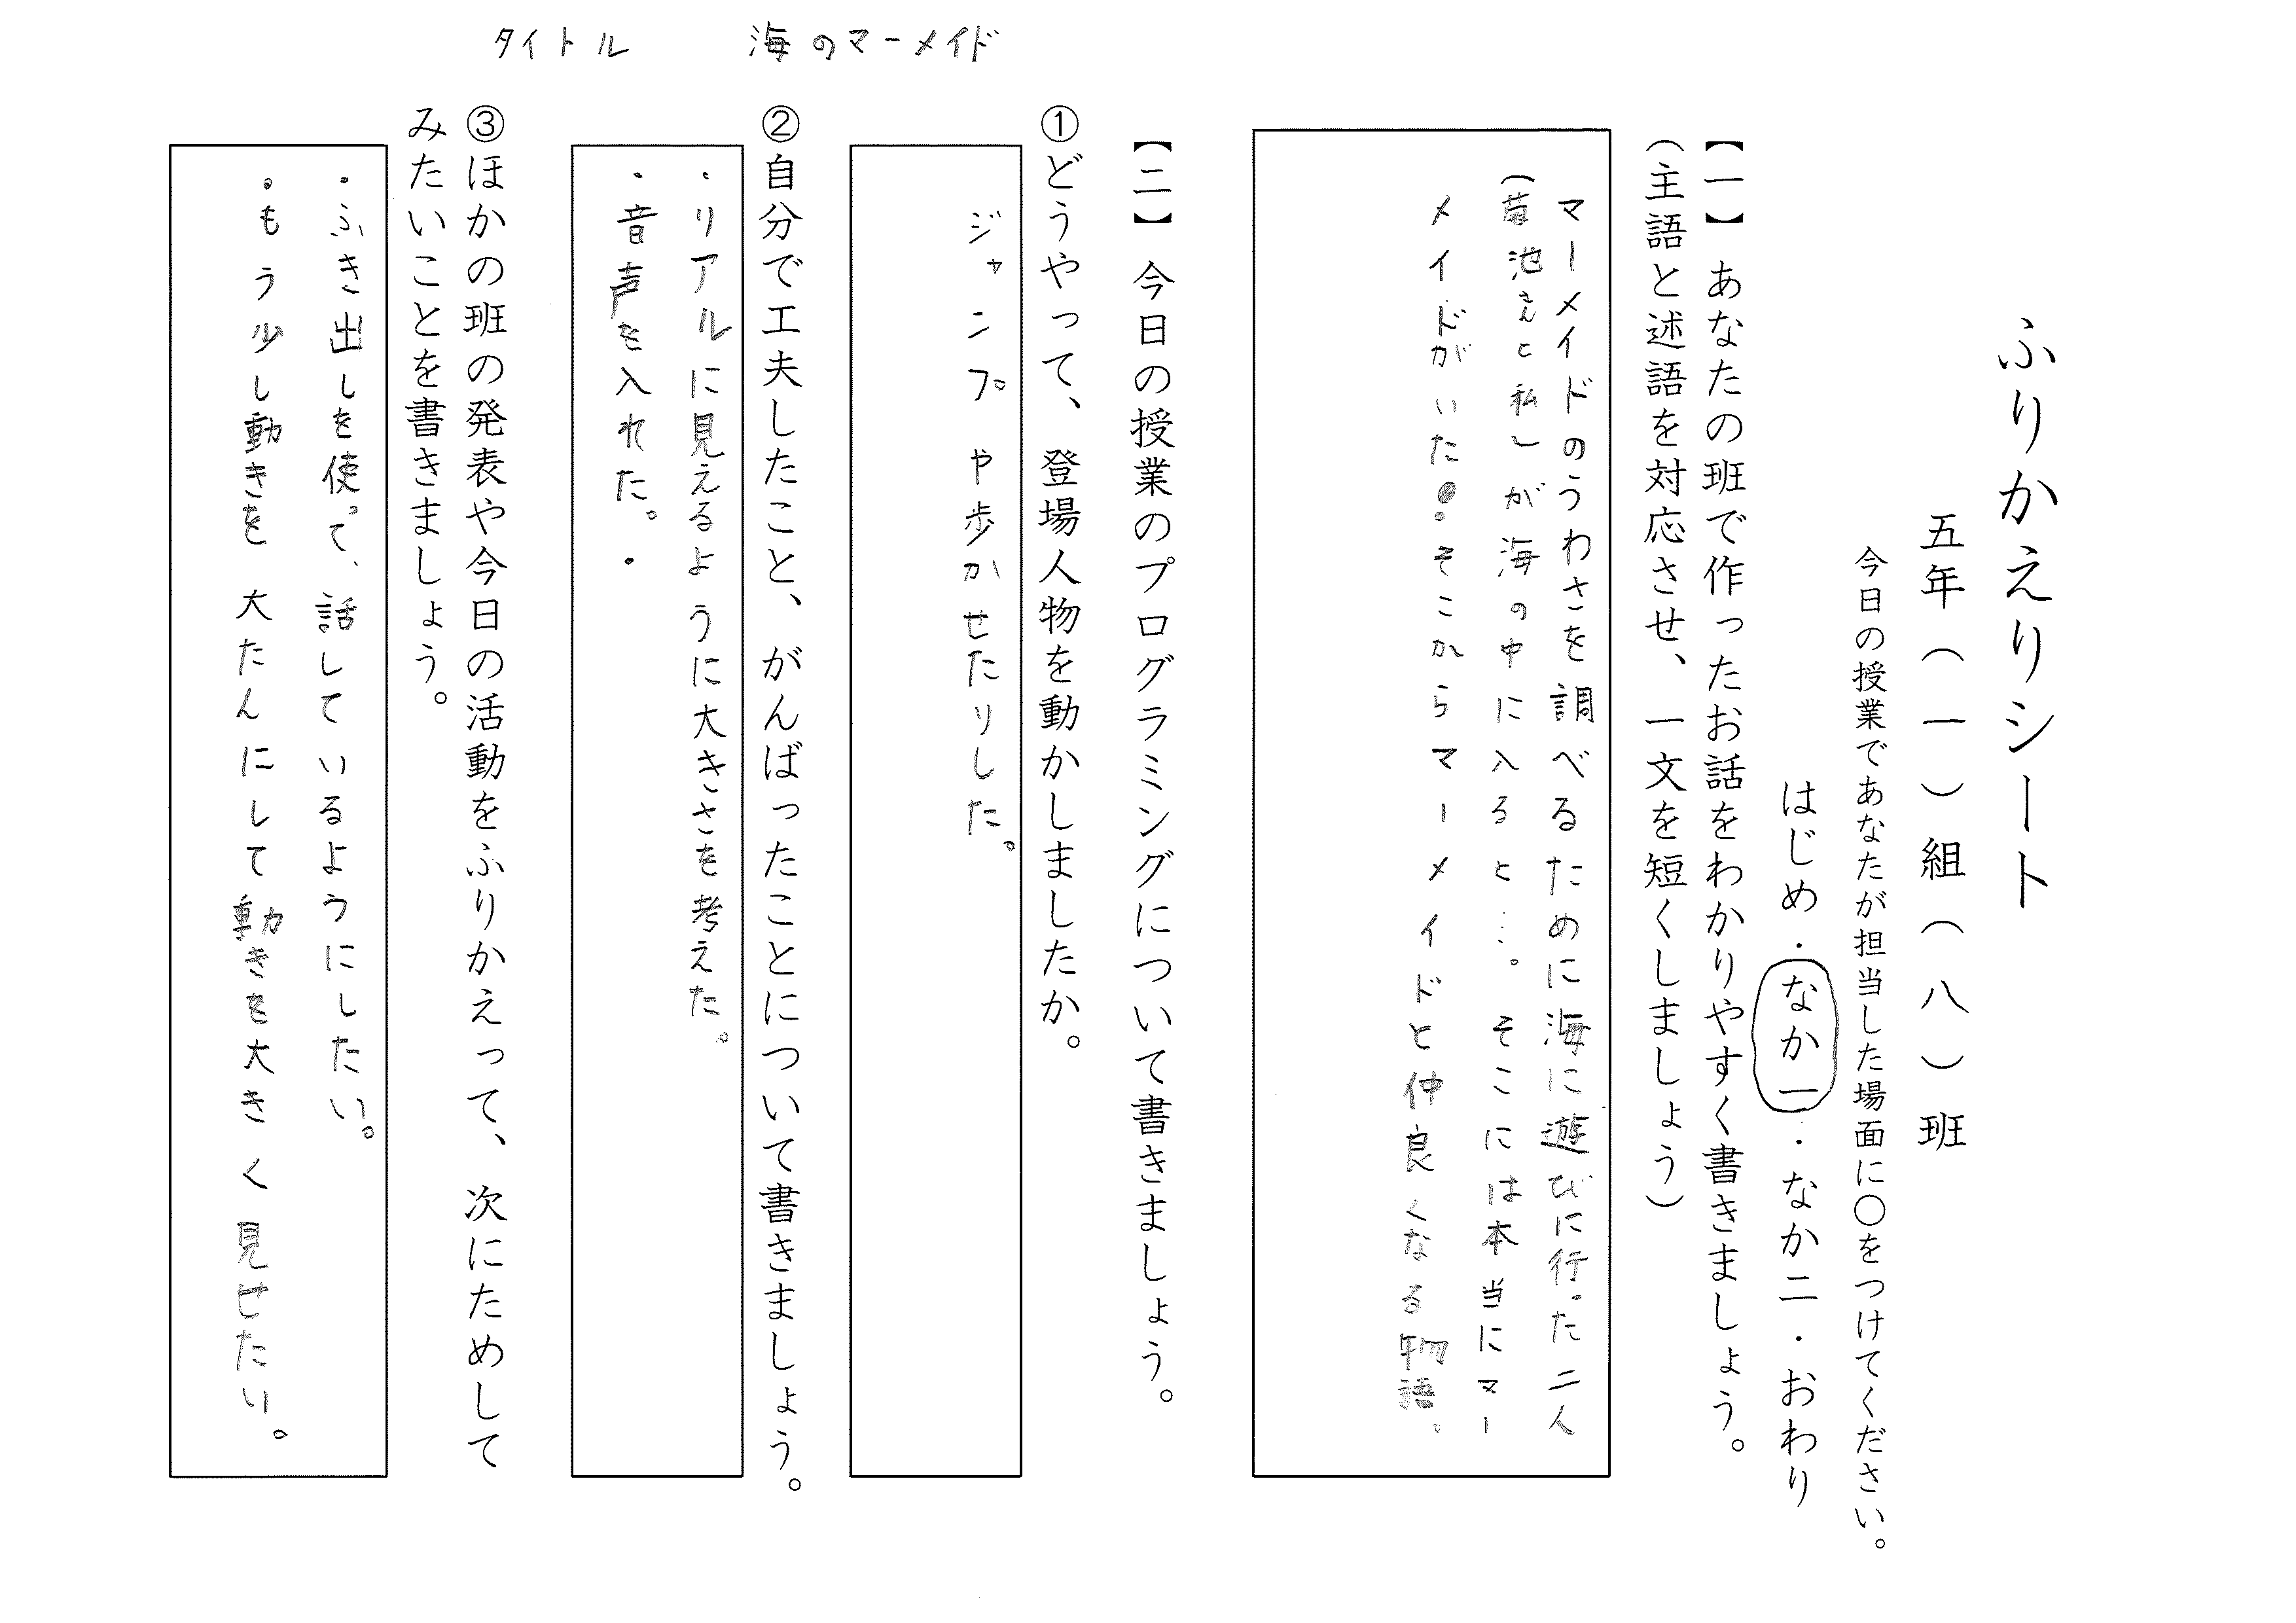 タイトル　海のマーメイド
ふりかえりシート
五年（一）組（八）班
今日の授業であなたが担当した場面に〇をつけてください。
はじめ・なか一・なか二・おわり
【一】あなたの班で作ったお話をわかりやすく書きましょう。
（主語と述語を対応させ、一文を短くしましょう）
マーメイドのうわさを調べるために海に遊びに行った二人
（菊池さんと私）が海の中に入ると…。そこには本当にマー
メイドがいた。そこからマーメイドと仲良くなる物語。
【二】今日の授業のプログラミングについて書きましょう。
①どうやって、登場人物を動かしましたか。
ジャンプや歩かせたりした。
②自分で工夫したこと、がんばったことについて書きましょう。
・リアルに見えるように大きさを考えた。
・音声を入れた。・
③ほかの班の発表や今日の活動をふりかえって、次にためして
みたいことを書きましょう。
・ふき出しを使って、話しているようにしたい。
・もう少し動きを大たんにして動きを大きく見せたい。